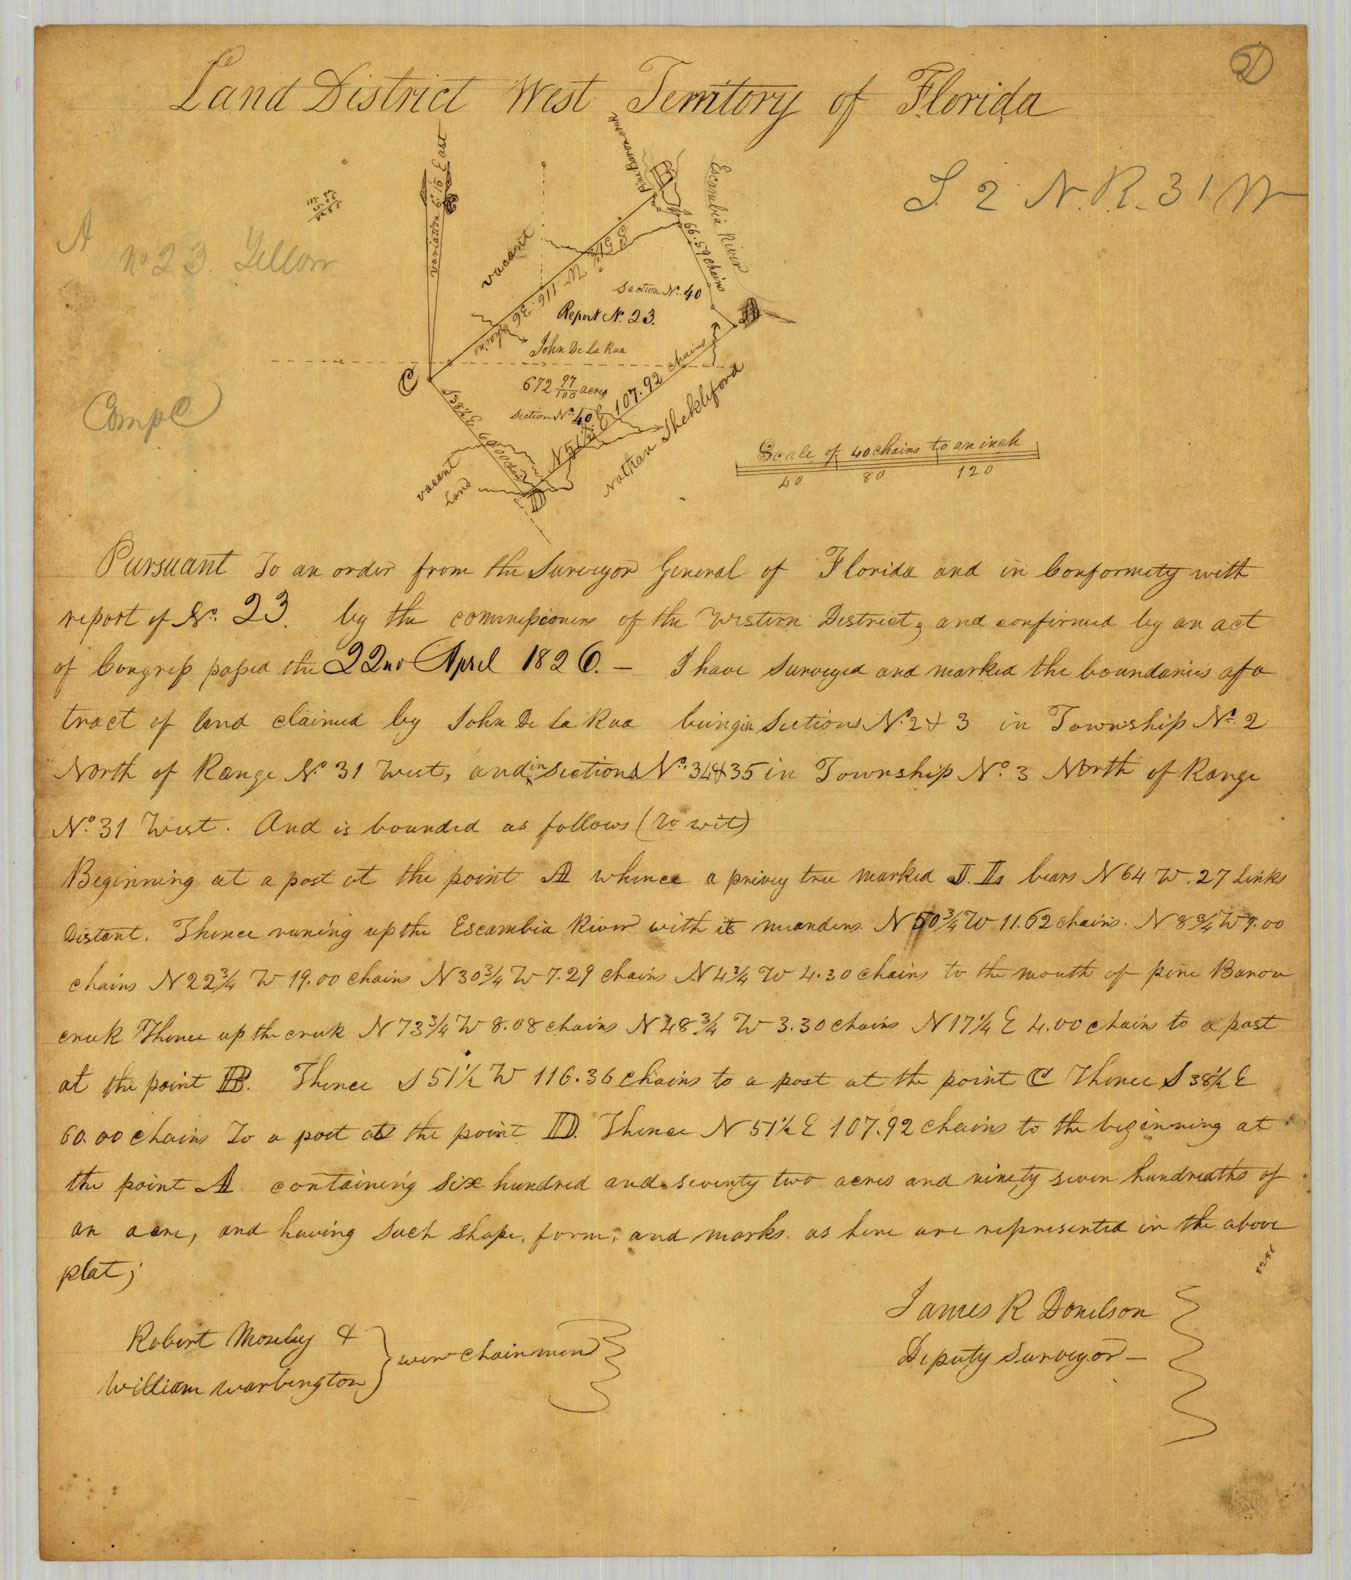 21
Land District West Territory of Florida
T. 2 N. R. 31 W
A
No 23. Yellow
Comp C
Variation 6° 16' East
Pine Barren creek
B
Escambia River
66.59 chains
vacant
S 51½ W 116.36 chains
Section No. 40
Report No. 23.
John De La Rua
672 97/100 acres
Section No. 40
C
A
S 38½ E 60.00 chains
N 51½ E 107.92 chains
Nathan Shekleford
vacant
Land
D
Scale of 40 chains to an inch
40 80 120
Pursuant To an order from the Surveyor General of Florida and in Conformety with
report of No. 23. by the commissioners of the Western District, and confirmed by an act
of Congress passed the 22nd April 1826. — I have Surveyed and marked the boundaries of a
tract of land claimed by John De La Rua being in Sections No. 2 & 3 in Township No. 2
North of Range No 31 West, and in Sections No. 34 & 35 in Township No. 3 North of Range
No. 31 West. And is bounded as follows (To wit)
Beginning at a post at the point A whence a privey tree marked bears N 64 W. 27 Links
Distant. Thence runing up the Escambia River with it meanders N 50¾ W 11.62 chains. N 8¾ W 9.00
chains N 22¾ W 19.00 chains N 30¾ W 7.29 chains N 4¾ W 4.30 chains to the mouth of pine Baron
creek Thence up the creek N 73¾ W 8.08 chains N 48¾ W 3.30 chains N 17¼ E 4.00 chains to a post
at the point B. Thence S 51½ W 116.36 chains to a post at the point C Thence S 38½ E
60.00 chains To a post at the point D. Thence N 51½ E 107.92 chains to the beginning at
the point A containing Six hundred and seventy two acres and ninety seven hundreaths of
an acre, and having Such Shape, form, and marks as here are represented in the above
plat;
James R Donelson
Deputy Surveyor —
Robert Moseley &
William Warbington
were chainmen